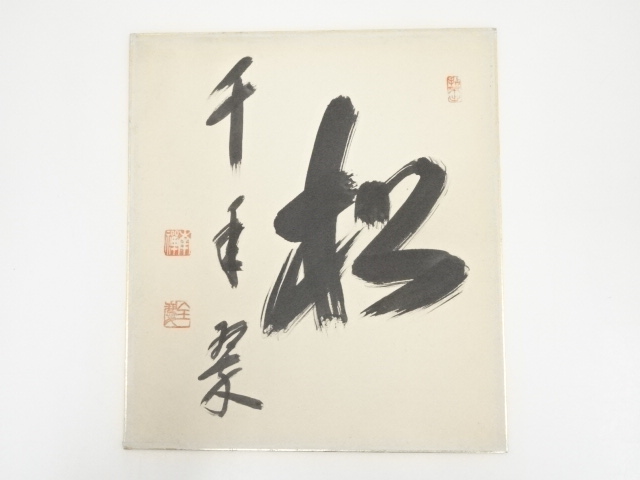 松
千年翠